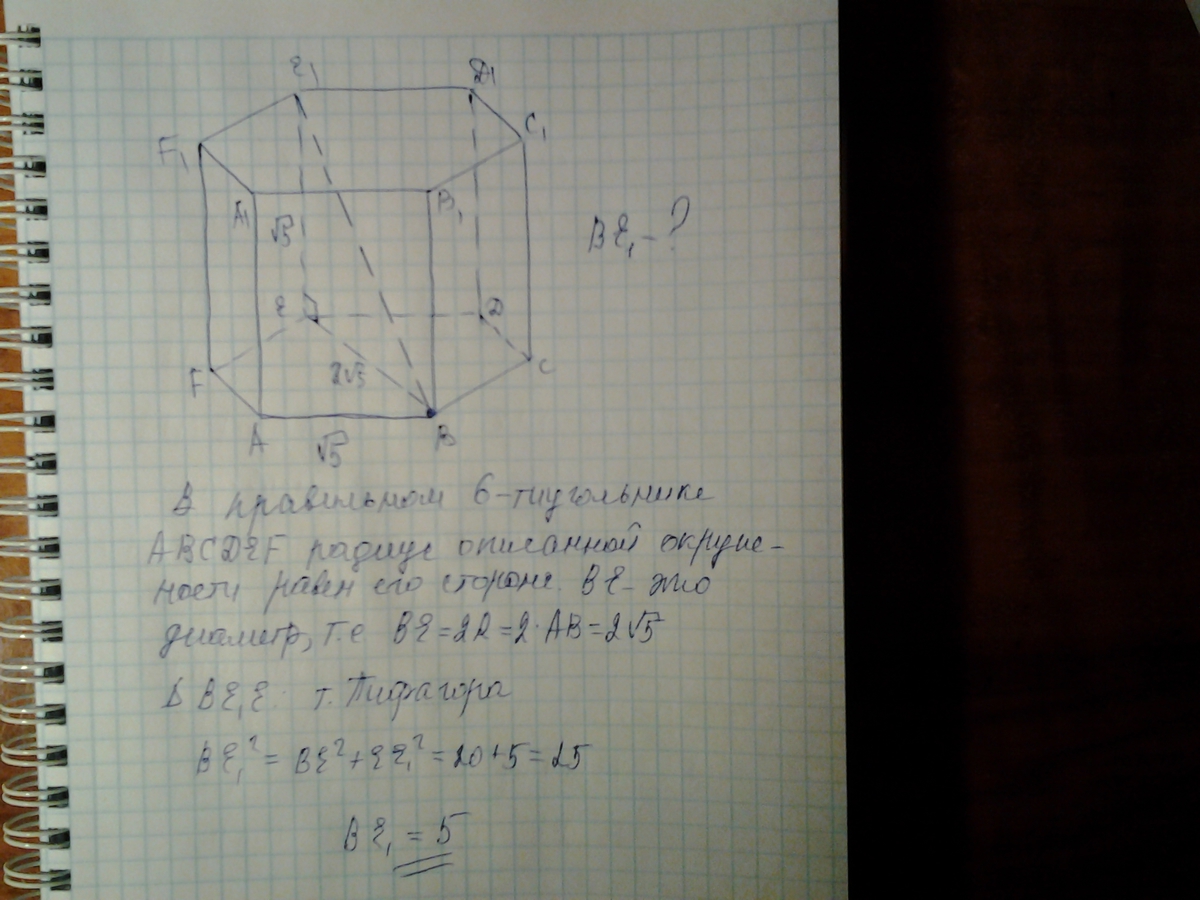 E₁ D₁
F₁ C₁
A₁ B₁
√5
BE₁ - ?
E D
F 2√5 C
A √5 B
В правильном 6-тиугольнике
ABCDEF радиус описанной окруж-
ности равен его стороне. BE - это
диаметр, т.е BE = 2R = 2·AB = 2√5
Δ BE₁E: т. Пифагора
BE₁² = BE² + EE₁² = 20 + 5 = 25
BE₁ = 5